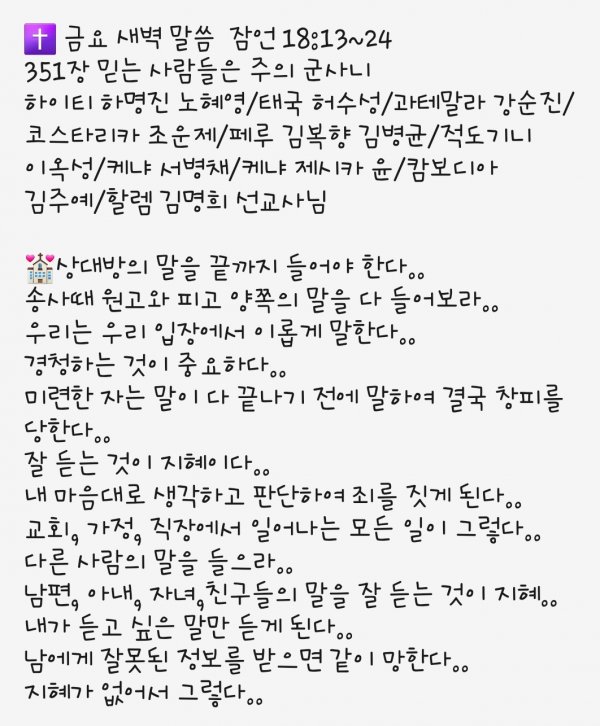 ✝️ 금요 새벽 말씀  잠언 18:13~24
351장 믿는 사람들은 주의 군사니
하이티 하명진 노혜영/태국 허수성/과테말라 강순진/
코스타리카 조운제/페루 김복향 김병균/적도기니
이옥성/케냐 서병채/케냐 제시카 윤/캄보디아
김주예/할렘 김명희 선교사님

💒상대방의 말을 끝까지 들어야 한다..
송사때 원고와 피고 양쪽의 말을 다 들어보라..
우리는 우리 입장에서 이롭게 말한다..
경청하는 것이 중요하다..
미련한 자는 말이 다 끝나기 전에 말하여 결국 창피를
당한다..
잘 듣는 것이 지혜이다..
내 마음대로 생각하고 판단하여 죄를 짓게 된다..
교회, 가정, 직장에서 일어나는 모든 일이 그렇다..
다른 사람의 말을 들으라..
남편, 아내, 자녀,친구들의 말을 잘 듣는 것이 지혜..
내가 듣고 싶은 말만 듣게 된다..
남에게 잘못된 정보를 받으면 같이 망한다..
지혜가 없어서 그렇다..